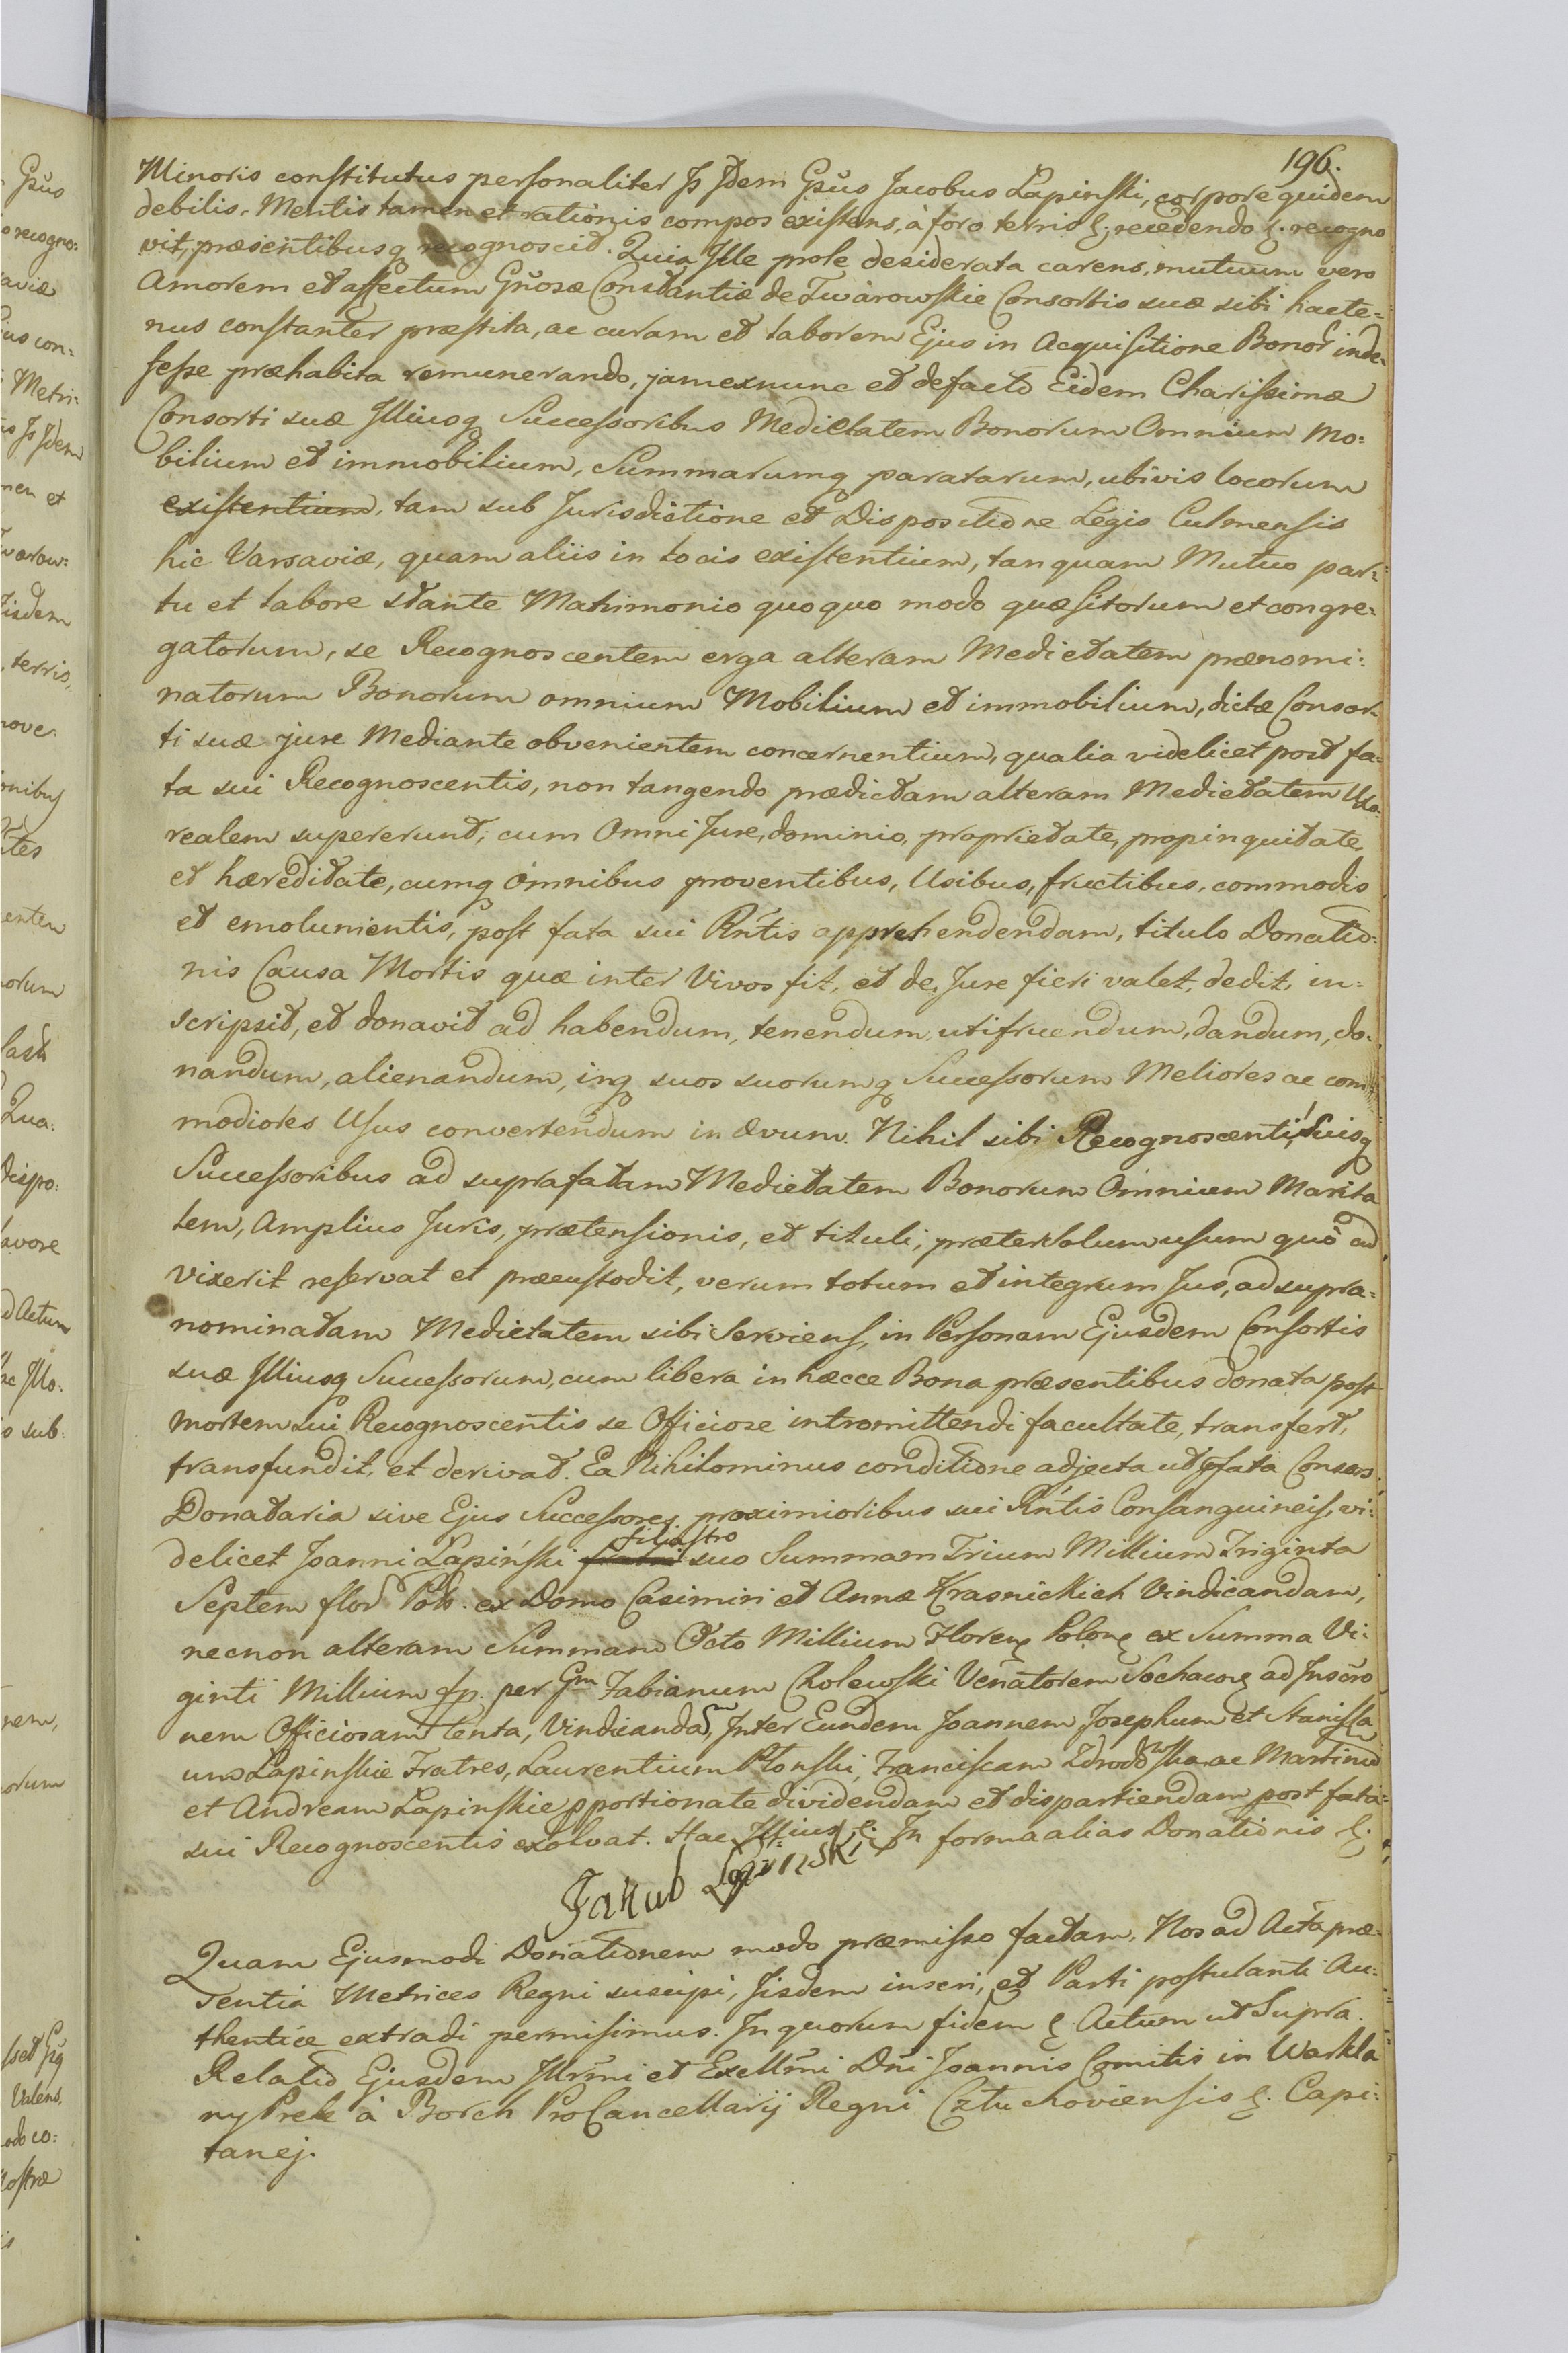 196.
Minoris constitutus personaliter Js Jdem Gs̃us Jacobus Łapinski, corpore quidem
debilis, Mentis tamen et rationis compos existens, à foro terris &. recedendo &. recogno
vit, præsentibusq recognoscit. Quia Jlle prole desiderata carens, mutuum vero
Amorem et affectum Gñosæ Constantiæ de Twarowskie Consortis suæ sibi hacte=
nus constanter præstita, ac curam et laborem Ejus in Acquisitione Bonor inde=
fesse præhabita remunerando, jam exnunc et defacto Eidem Charissimæ
Consorti suæ Jlliusq Successoribus Medietatem Bonorum Omnium Mo=
bilium et immobilium, Summarumq paratarum, ubivis locorum
existentium, tam sub Jurisdictione et Dispositione Legis Culmensis
hic Varsaviæ, quam aliis in locis existentium, tanquam Mutuo par=
tu et labore stante Matrimonio quoquo modo quæsitorum et congre=
gatorum, se Recognoscentem erga alteram Medietatem prænomi=
natorum Bonorum omnium Mobilium et immobilium, dictæ Consor=
ti suæ jure Mediante obvenientem concernentium, qualia videlicet post fa=
ta sui Recognoscentis, non tangendo prædictam alteram Medietatem Uxo=
realem supererunt; cum Omni Jure, dominio, proprietate, propinquitate,
et hæreditate, cumq omnibus proventibus, Usibus, fructibus, commodis
et emolumentis, post fata sui Rñtis apprehendendam, titulo Donatio=
nis Causa Mortis quæ inter Vivos fit, et de Jure fieri valet, dedit, in=
scripsit, et donavit ad habendum, tenendum, utifruendum, dandum, do=
nandum, alienandum, inq suos suorumq Successorum Meliores ac com=
modiores Usus convertendum in ævum. Nihil sibi Recognoscenti, Suisq
Successoribus ad suprafatam Medietatem Bonorum Omnium Marita
lem, Amplius Juris, prætensionis, et tituli, præter solum usum quo ad
vixerit reservat et præcustodit, verum totum et integrum Jus, ad supra=
nominatam Medietatem sibi Serviens, in Personam Ejusdem Consortis
suæ Jlliusq Successorum, cum libera in hæcce Bona præsentibus donata post
mortem sui Recognoscentis se Officiose intromittendi facultate, transfert,
transfundit, et derivat. Ea Nihilominus conditione adjecta ut pfata Consors
Donataria sive Ejus Successores, proximioribus sui Rñtis Consanguineis, vi=
delicet Joanni Łapiński filiastro suo Summam Trium Millium Triginta
Septem flor Pol: ex Domo Casimiri et Annæ Krasnickich Vindicandam,
necnon alteram Summam Octo Millium Floren Polon ex Summa Vi=
ginti Millium fp. per Gm Fabianum Cholewski Venatorem Sochacz ad Inscro
nem Officiosam tenta, Vindicandam, Inter Eundem Joannem Josephum et Stanisla
um Łapinskie Fratres, Laurentium Płonski, Franciscam Zdrodowska ac Martinum
et Andream Łapinskie pportionate dividendam et dispartiendam post fata
sui Recognoscentis exolvat. Hac Jllius &. In forma alias Donationis &.
Jakub Łapinski
Quam Ejusmodi Donationem modo præmisso factam, Nos ad Acta præ=
sentia Metrices Regni suscipi, Jisdem inseri, et Parti postulanti Au=
thentice extradi permisimus. In quorum fidem &. Actum ut Supra.
Relatio Ejusdem Jllrm̃i et Excellm̃i Dñi Joannis Comitis in Warkla
ny Prele à Borch ProCancellarij Regni Cztuchoviensis &. Capi=
tanej.